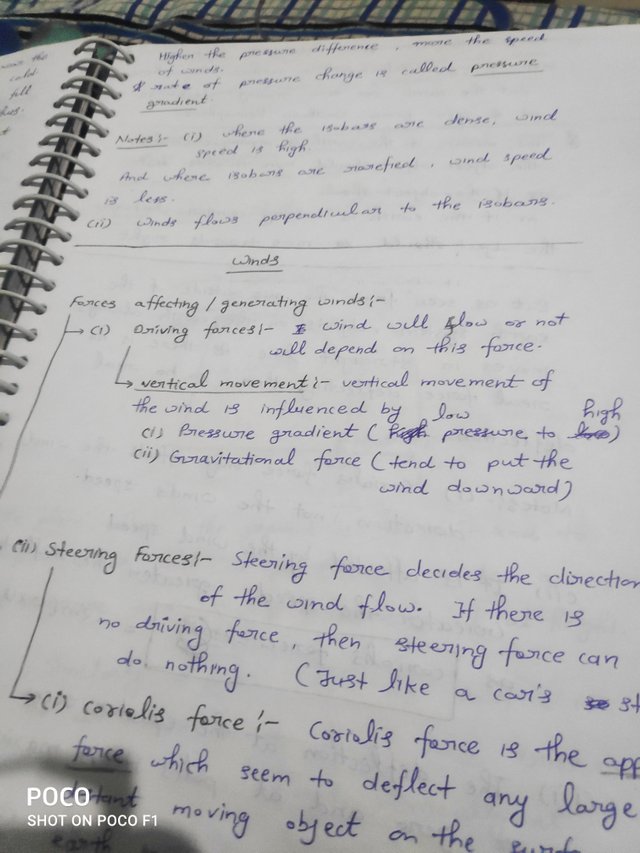 Higher the pressure difference, more the speed
of winds.
& rate of pressure change is called pressure
gradient.
Notes:- (i) where the isobars are dense, wind
speed is high
And where isobars are rarefied, wind speed
is less.
(ii) winds flows perpendicular to the isobars.
Winds
Forces affecting / generating winds:-
(i) Driving forces:- wind will flow or not
will depend on this force.
vertical movement:- vertical movement of
the wind is influenced by low high
(i) Pressure gradient (high pressure to low)
(ii) Gravitational force (tend to put the
wind downward)
(ii) Steering Forces:- Steering force decides the direction
of the wind flow. If there is
no driving force, then steering force can
do nothing. (Just like a car's st
(i) coriolis force:- Coriolis force is the app
force which seem to deflect any large
distant moving object on the surfa
earth
POCO
SHOT ON POCO F1